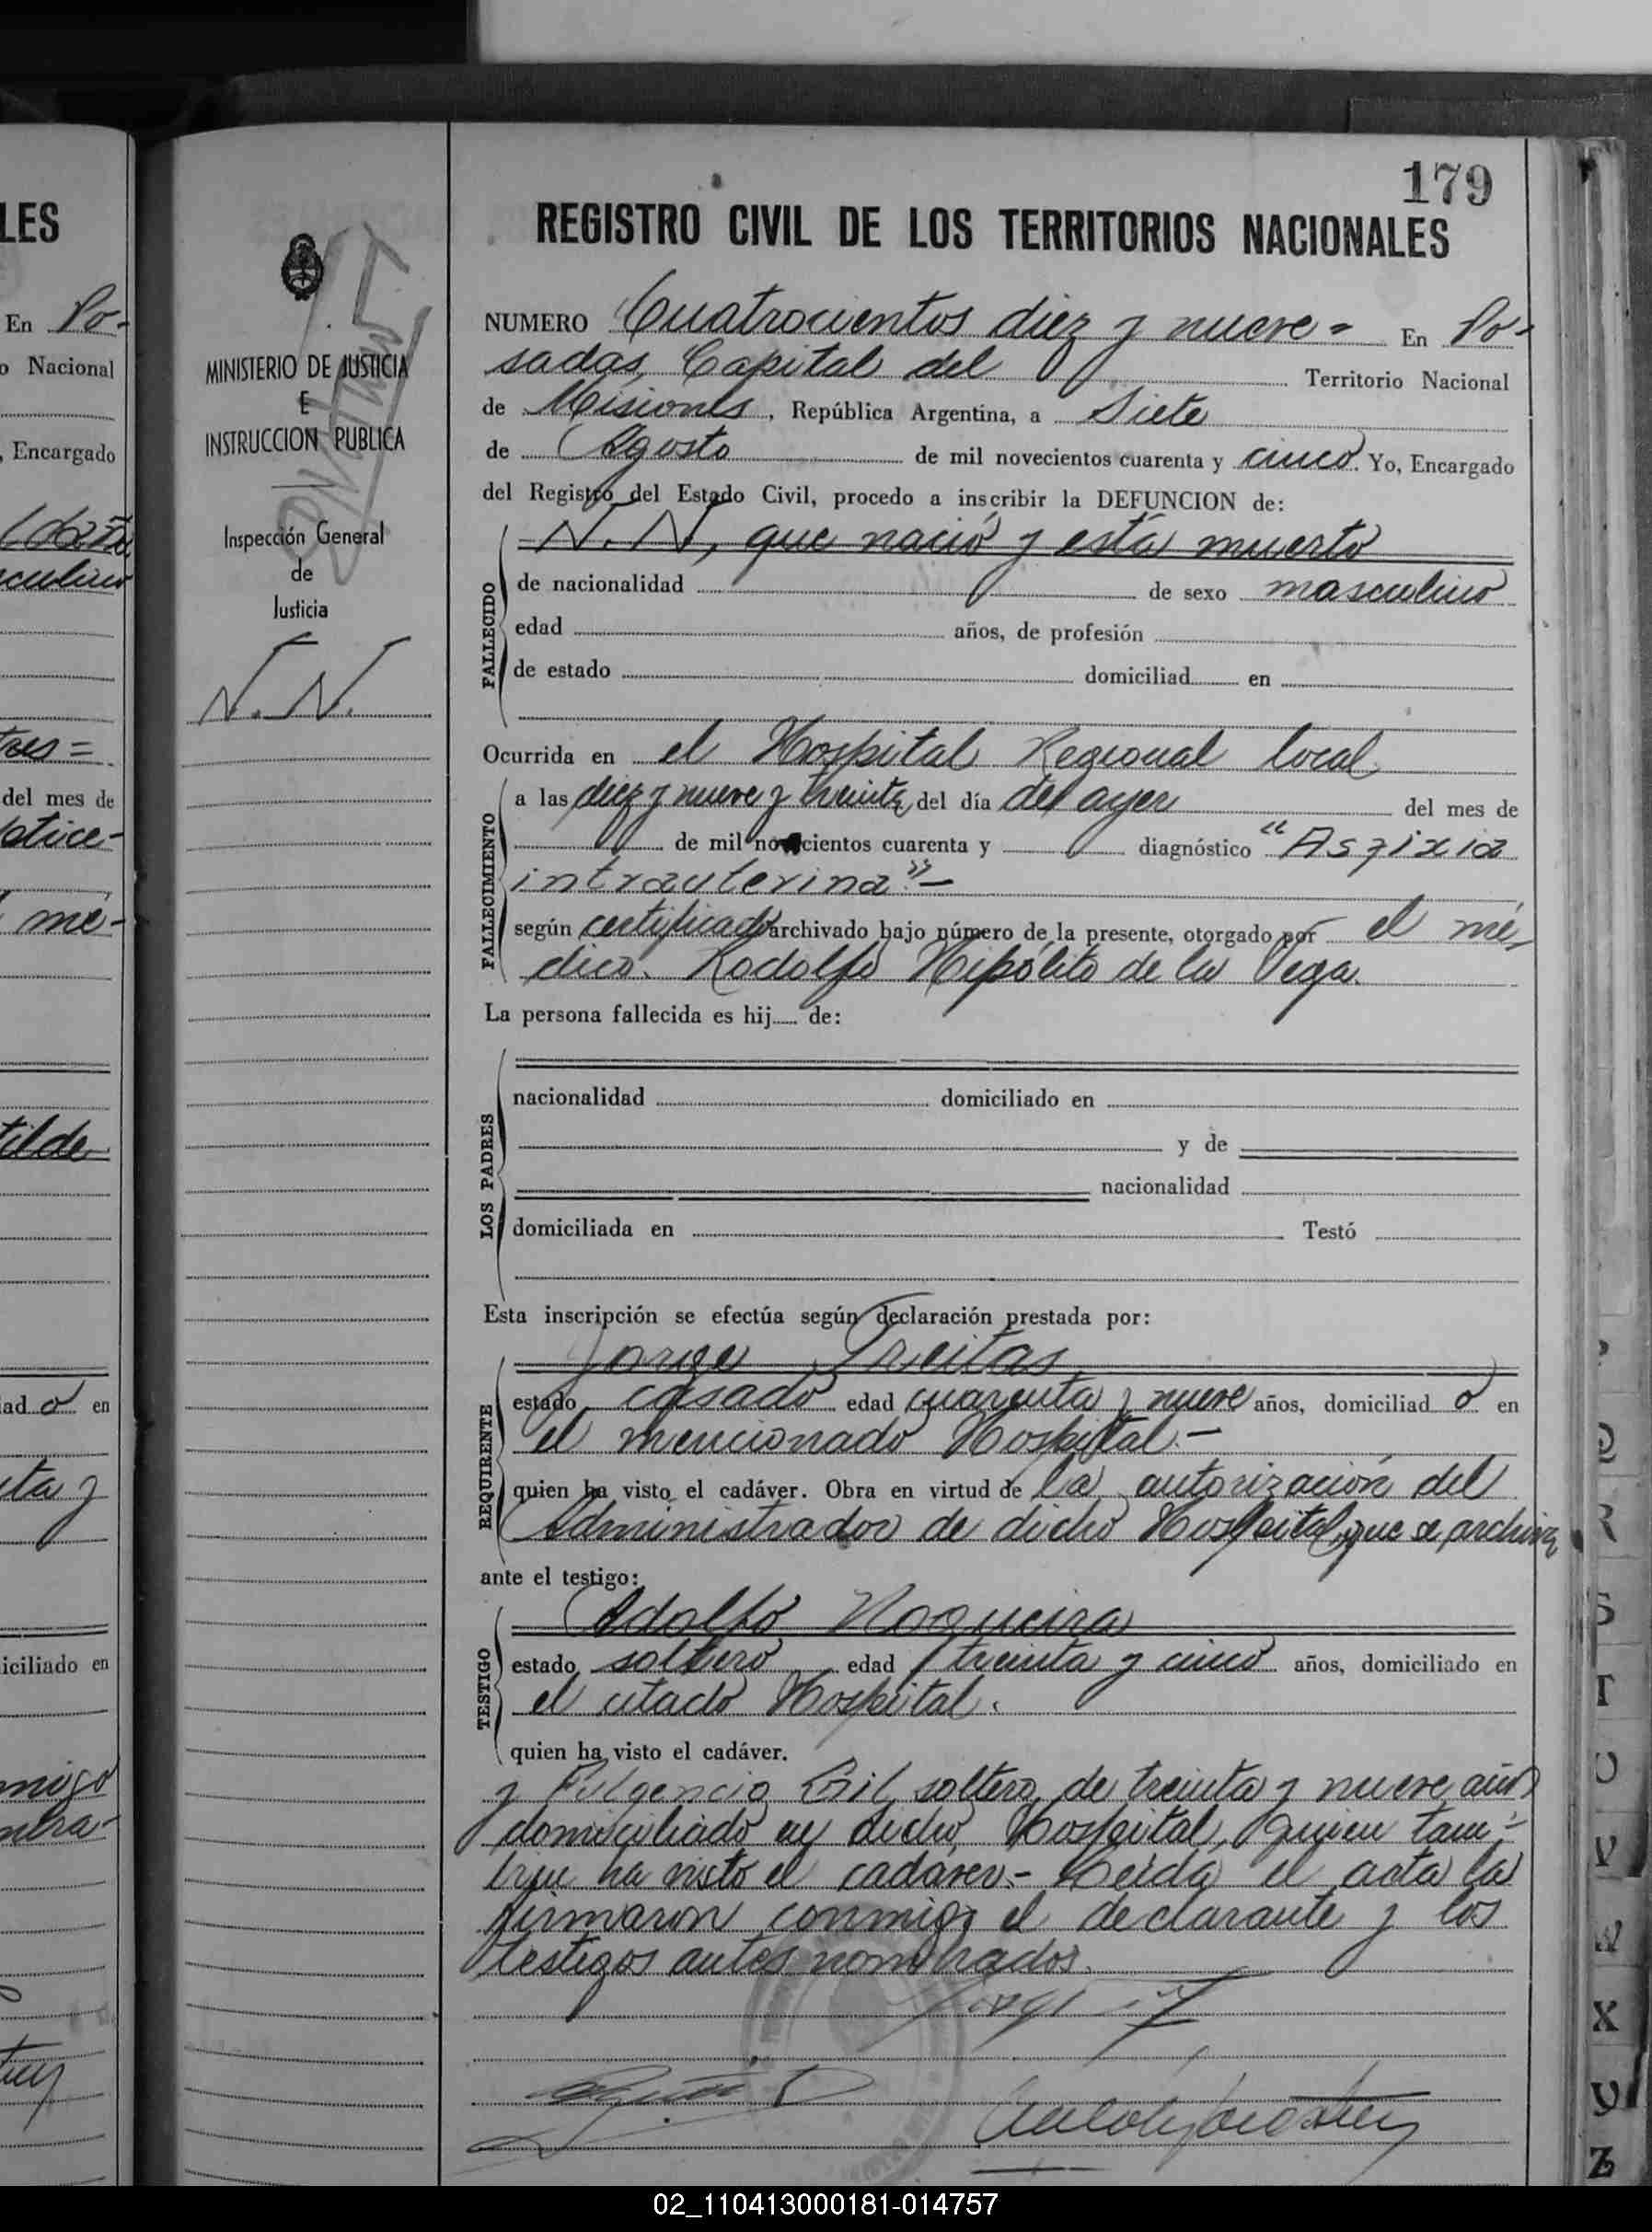 179
REGISTRO CIVIL DE LOS TERRITORIOS NACIONALES
NUMERO Cuatrocientos diez y nueve = En Po-
sadas, Capital del Territorio Nacional
de Misiones, República Argentina, a Siete
de Agosto de mil novecientos cuarenta y cinco. Yo, Encargado
del Registro del Estado Civil, procedo a inscribir la DEFUNCION de:
FALLECIDO
N. N, que nació y está muerto
de nacionalidad de sexo masculino
edad años, de profesión
de estado domiciliad en
Ocurrida en el Hospital Regional local
FALLECIMIENTO
a las diez y nueve y treinta, del día de ayer del mes de
de mil novecientos cuarenta y diagnóstico "Asfixia
intrauterina".-
según certificado archivado bajo número de la presente, otorgado por el mé-
dico. Rodolfo Hipólito de la Vega.
La persona fallecida es hij de:
LOS PADRES
nacionalidad domiciliado en
y de
nacionalidad
domiciliada en Testó
Esta inscripción se efectúa según declaración prestada por:
REQUIRENTE
Jorge Freitas
estado casado edad cuarenta y nueve años, domiciliad o en
el mencionado Hospital.-
quien ha visto el cadáver. Obra en virtud de la autorización del
Administrador de dicho Hospital, que se archiva
ante el testigo:
TESTIGO
Adolfo Nogueira
estado soltero edad treinta y cinco años, domiciliado en
el citado Hospital.
quien ha visto el cadáver.
y Fulgencio Gil, soltero, de treinta y nueve años
domiciliado en dicho Hospital, quien tam-
bien ha visto el cadáver.- Leída el acta la
firmaron conmigo el declarante y los
testigos antes nombrados.
MINISTERIO DE JUSTICIA
E
INSTRUCCION PUBLICA
Inspección General
de
Justicia
N. N.
LES
En Po-
o Nacional
, Encargado
culino
tres=
del mes de
mé-
tilde
iad o en
ta y
iciliado en
migo
Q
R
S
T
U
V
W
X
Y
Z
02_110413000181-014757